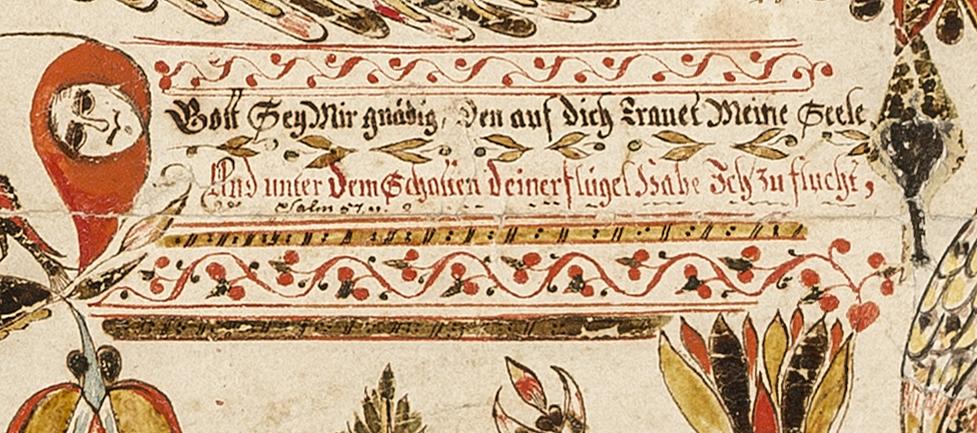 Gott Sey Mir gnädig, Den auf dich Trauet Meine Seele
Und unter Dem Schatten deiner flügel Habe Ich Zu flucht,
Psalm 57 v. 2